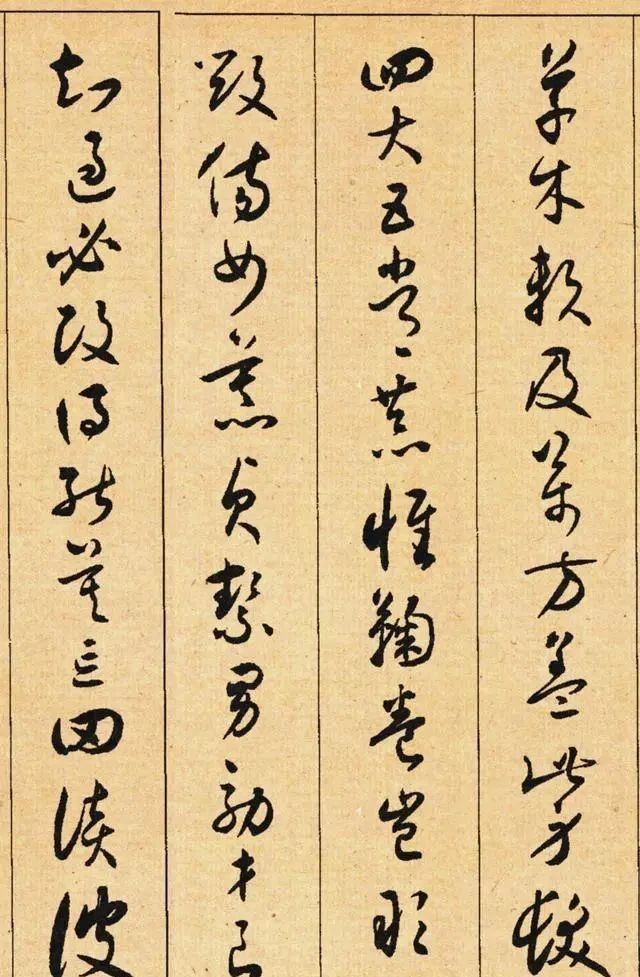 草木賴及萬方蓋此身髮
四大五常恭惟鞠養豈敢
毀傷女慕貞絜男効才良
知過必改得能莫忘罔談彼